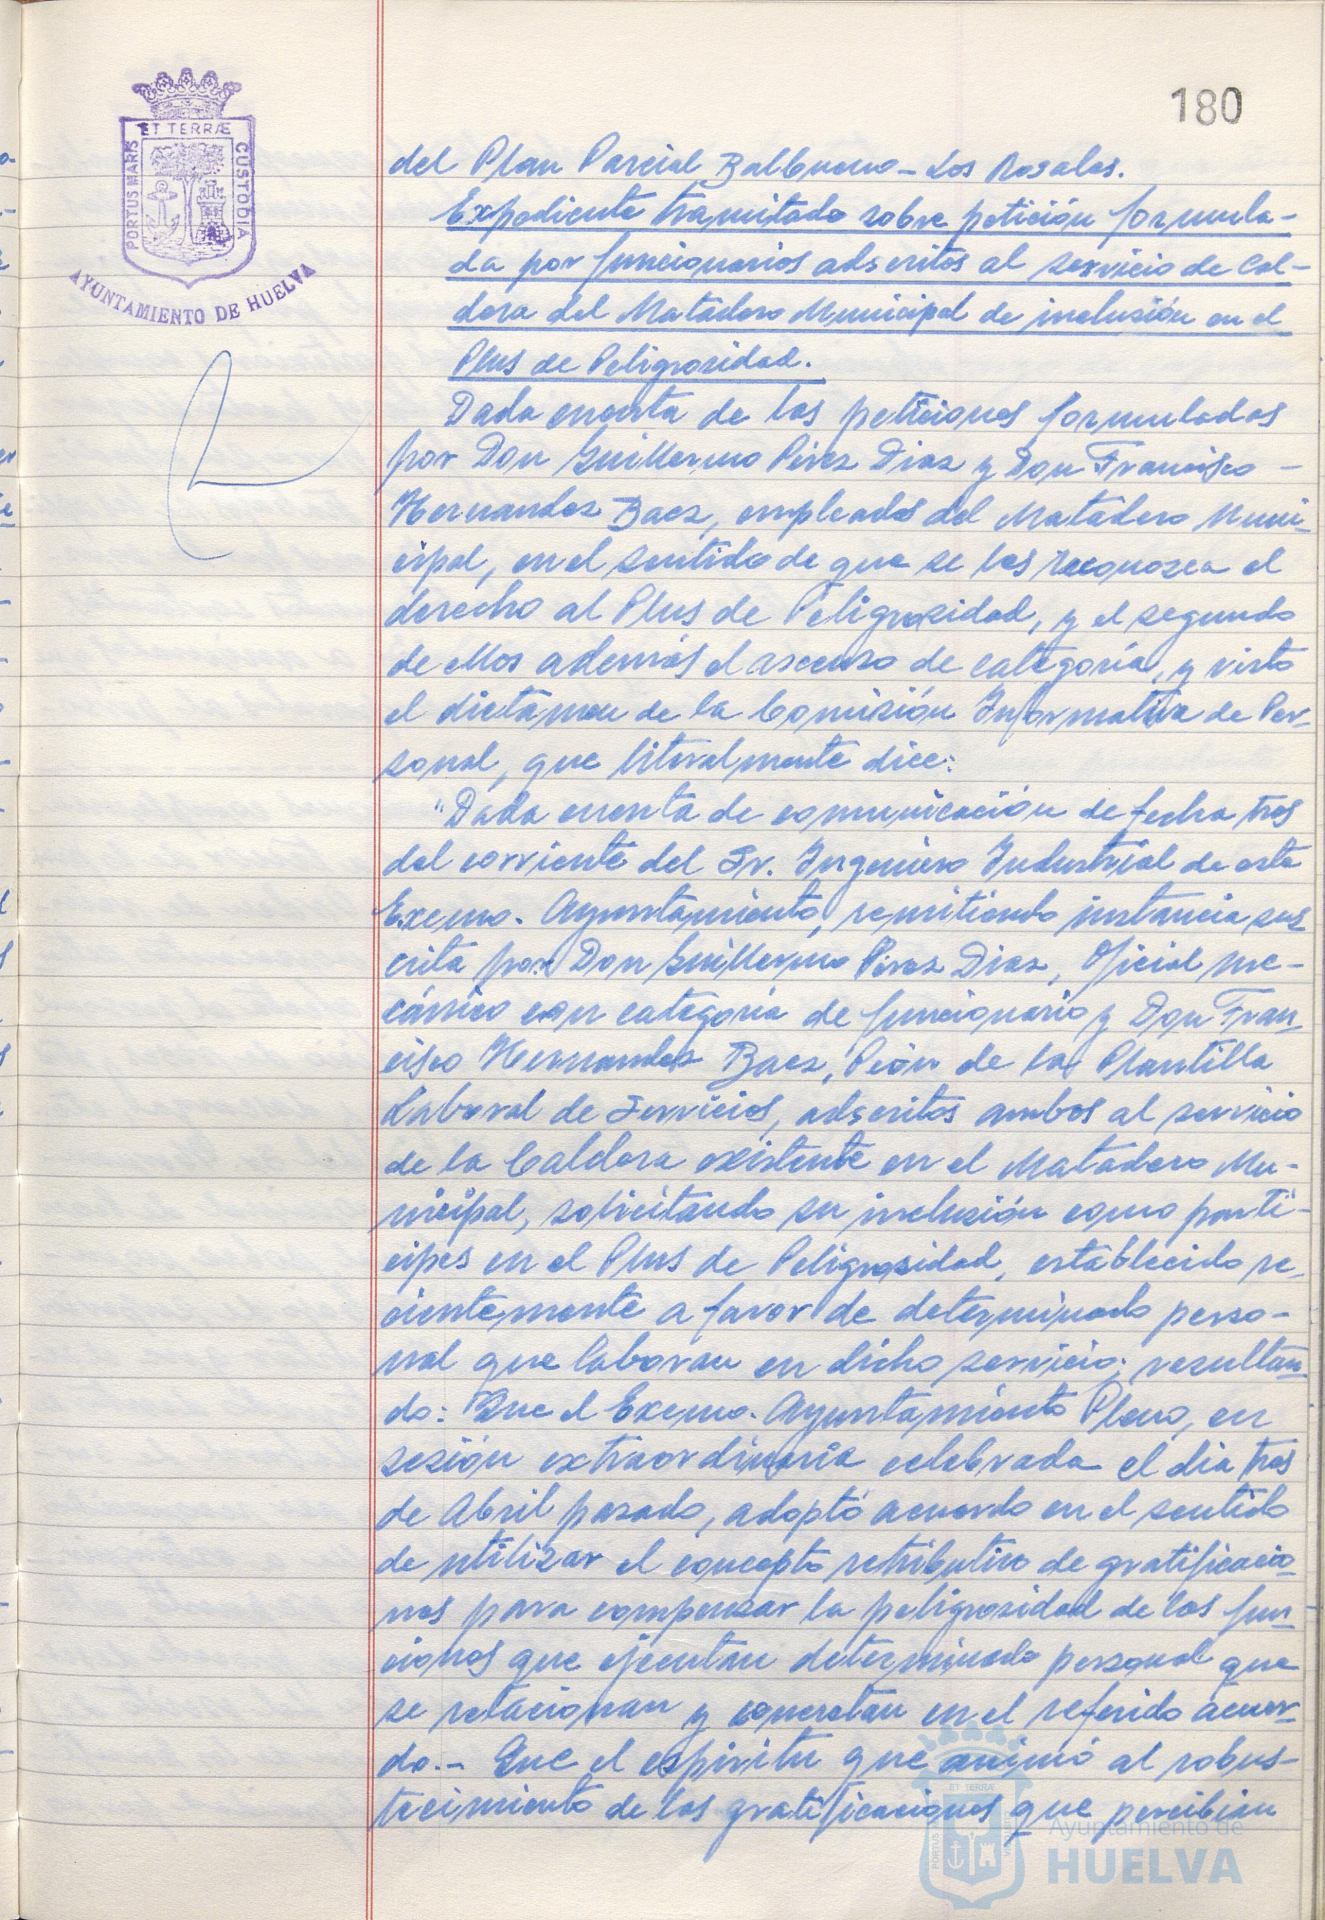 180
ET TERRÆ
PORTUS MARIS
CUSTODIA
AYUNTAMIENTO DE HUELVA
del Plan Parcial Balbueno - Los Rosales.
Expediente tramitado sobre petición formula-
da por funcionarios adscritos al servicio de Cal-
dera del Matadero Municipal de inclusión en el
Plus de Peligrosidad.
Dada cuenta de las peticiones formuladas
por Don Guillermo Pérez Diaz y Don Francisco -
Hernandez Baez, empleados del Matadero Muni-
cipal, en el sentido de que se les reconozca el
derecho al Plus de Peligrosidad, y el segundo
de ellos además el ascenso de categoría, y visto
el dictámen de la Comisión Informativa de Per-
sonal, que literalmente dice:
"Dada cuenta de comunicación de fecha tres
del corriente del Sr. Ingeniero Industrial de este
Excmo. Ayuntamiento, remitiendo instancia sus
crita por Don Guillermo Pérez Diaz, Oficial me-
cánico con categoría de funcionario y Don Fran-
cisco Hernandez Baez, Peón de la Plantilla
Laboral de Servicios, adscritos ambos al servicio
de la Caldera existente en el Matadero Mu-
nicipal, solicitando su inclusión como partí-
cipes en el Plus de Peligrosidad, establecido re-
cientemente a favor de determinado perso-
nal que laboran en dicho servicio; resultan-
do: Que el Excmo. Ayuntamiento Pleno, en
sesión extraordinaria celebrada el dia tres
de Abril pasado, adoptó acuerdo en el sentido
de utilizar el concepto retributivo de gratificacio-
nes para compensar la peligrosidad de las fun-
ciones que ejecutan determinado personal que
se relacionan y concretan en el referido acuer-
do.- Que el espíritu que animó al robus-
tecimiento de las gratificaciones que percibian
Ayuntamiento de
HUELVA